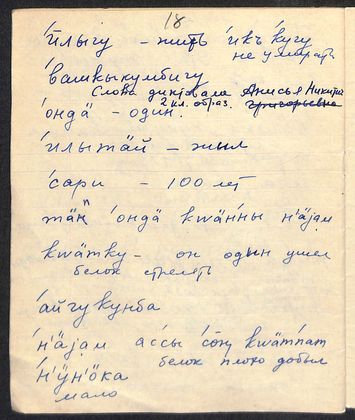 18
'илыгу – жить 'икъ 'кугу
не умирать
'вашкыкумбигу
Слова диктовала Анисья Никити
2 кл. образ. григорьевна
'ондӓ – один.
'илытӓй – жыл
'сари – 100 лет
тӓн 'ондӓ квӓн'ны н'ӓjам
квӓтку – он один ушел
белок стрелять
'айгу кунба
'н'ӓjам ассы со̄ц квӓт'пат
белок плохо добыл
'н'ӱн'ӧка
мало